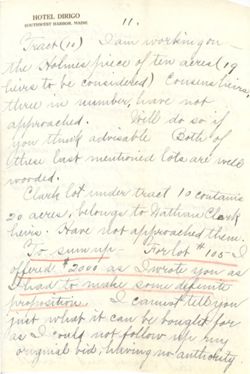 HOTEL DIRIGO
SOUTHWEST HARBOR, MAINE
11.
Tract (10) I am working on
the Holmes piece of ten acres (19
heirs to be considered) Cousens heirs,
three in number, have not
approached. Will do so if
you think advisable Both of
these last mentioned lots are well
wooded.
Clark lot under tract 10 contains
20 acres, belongs to Nathan Clark
heirs. Have not approached them.
To sum up - For lot # 105 - I
offered $2000 as I wrote you as
I had to make some definite
proposition. I cannot tell you
just what it can be bought for
as I could not follow up my
original bid, having no authority.